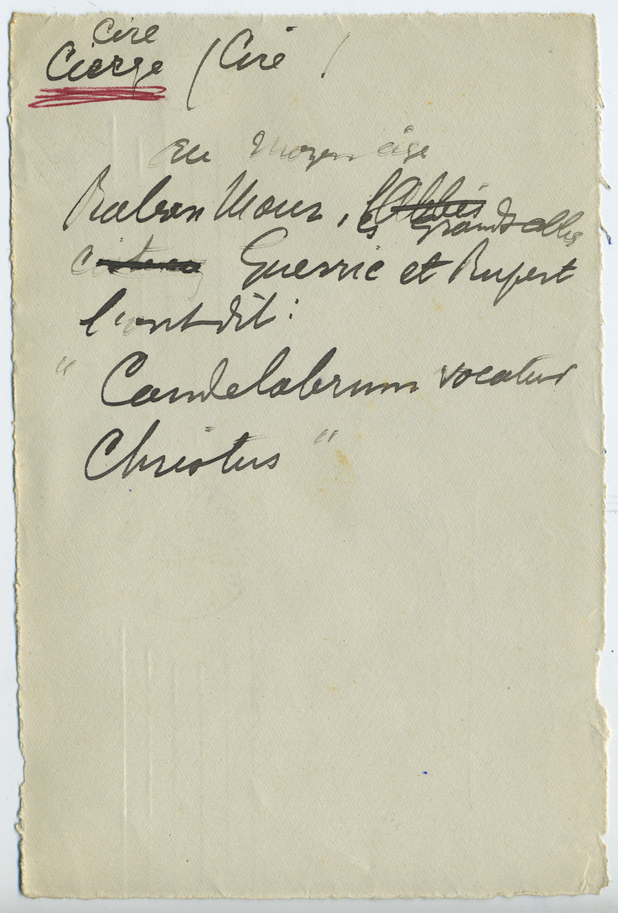 Cire
Cierge (Cire)
au Moyen age
Raban Maur, les Abbés
grands abbés
Guerric et Rupert
l'ont dit :
" Candelabrum vocatur
Christus "